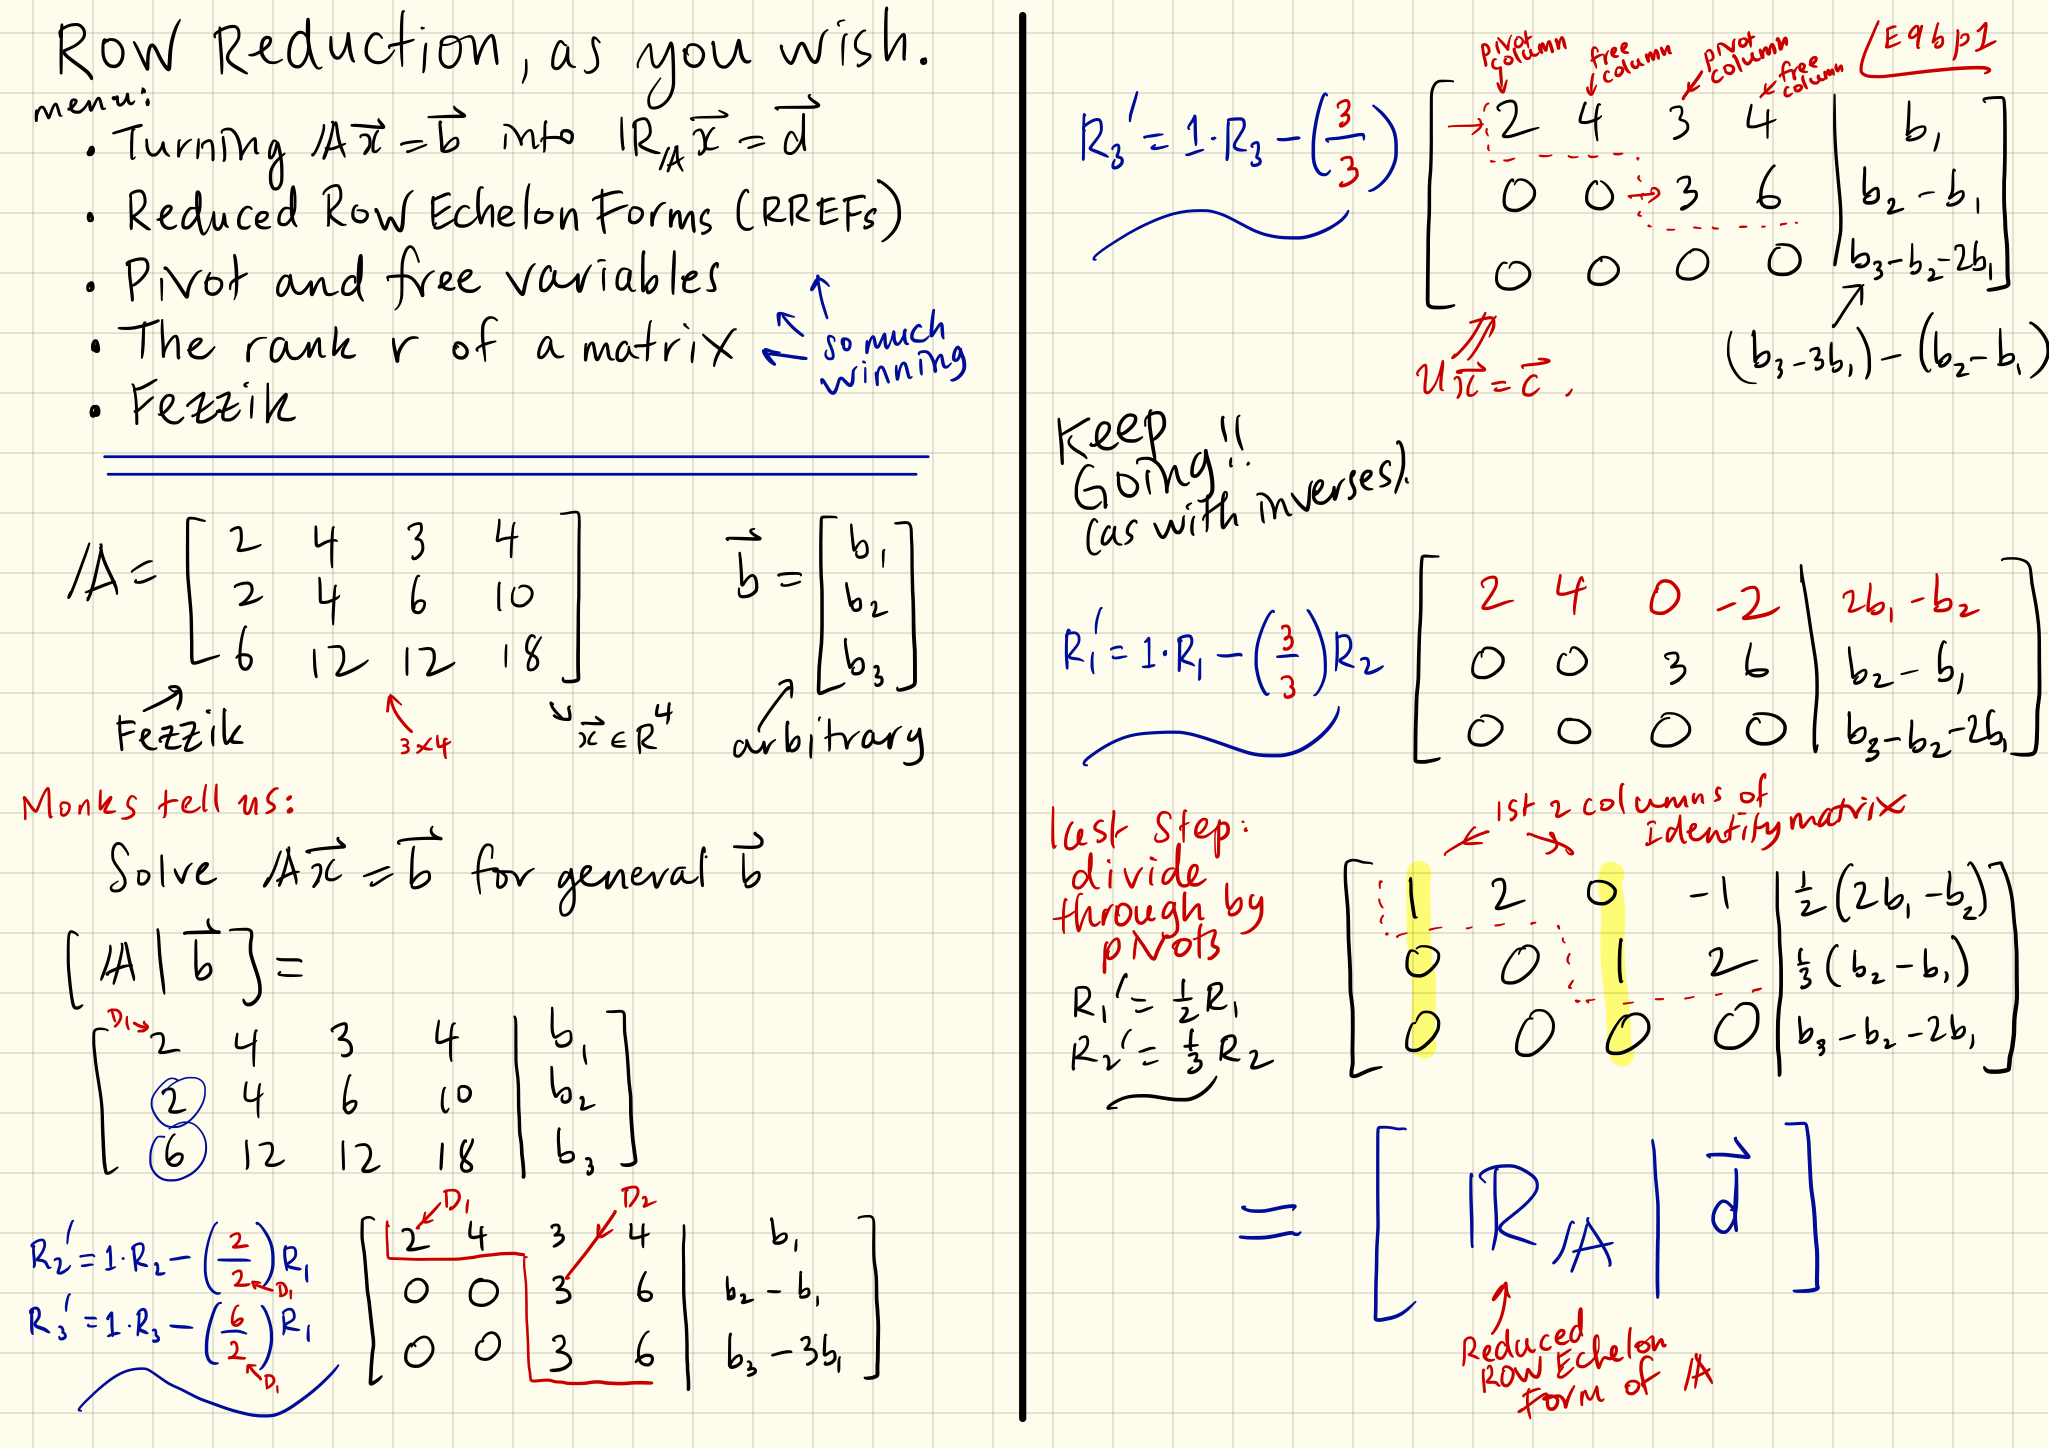 Row Reduction, as you wish.
menu:
• Turning 𝔸x⃗ = b⃗ into ℝ_𝔸 x⃗ = d⃗
• Reduced Row Echelon Forms (RREFs)
• Pivot and free variables
• The rank r of a matrix
so much
winning
• Fezzik
𝔸 = [ 2 4 3 4
2 4 6 10
6 12 12 18 ]
b⃗ = [ b₁
b₂
b₃ ]
Fezzik
3x4
x⃗ ∈ R⁴
arbitrary
Monks tell us:
Solve 𝔸x⃗ = b⃗ for general b⃗
[ 𝔸 | b⃗ ] =
D₁→
[ 2 4 3 4 | b₁
2 4 6 10 | b₂
6 12 12 18 | b₃ ]
R₂' = 1·R₂ − (2/2) R₁
D₁
R₃' = 1·R₃ − (6/2) R₁
D₁
D₁ D₂
[ 2 4 3 4 | b₁
0 0 3 6 | b₂ − b₁
0 0 3 6 | b₃ − 3b₁ ]
E9bp1
pivot column
free column
pivot column
free column
R₃' = 1·R₃ − (3/3)
[ → 2 4 3 4 | b₁
0 0 → 3 6 | b₂ − b₁
0 0 0 0 | b₃−b₂−2b₁ ]
(b₃−3b₁) − (b₂−b₁)
Ux⃗ = c⃗.
Keep
Going!!
(as with inverses).
R₁' = 1·R₁ − (3/3) R₂
[ 2 4 0 -2 | 2b₁ − b₂
0 0 3 6 | b₂ − b₁
0 0 0 0 | b₃−b₂−2b₁ ]
last step:
divide
through by
pivots
R₁' = ½ R₁
R₂' = ⅓ R₂
1st 2 columns of
Identity matrix
[ 1 2 0 -1 | ½ (2b₁ − b₂)
0 0 1 2 | ⅓ (b₂ − b₁)
0 0 0 0 | b₃ − b₂ − 2b₁ ]
= [ ℝ_𝔸 | d⃗ ]
Reduced
Row Echelon
Form of 𝔸